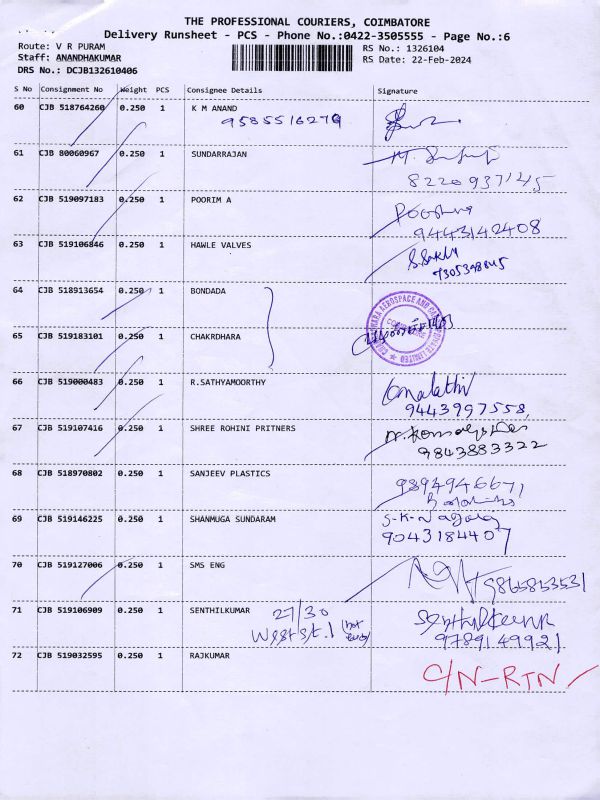 THE PROFESSIONAL COURIERS, COIMBATORE
Delivery Runsheet - PCS - Phone No.:0422-3505555 - Page No.:6
Route: V R PURAM
RS No.: 1326104
Staff: ANANDHAKUMAR
RS Date: 22-Feb-2024
DRS No.: DCJB132610406
S No Consignment No Weight PCS Consignee Details Signature
60 CJB 518764260 0.250 1 K M ANAND
9585516279
61 CJB 80060967 0.250 1 SUNDARRAJAN
8220937145
62 CJB 519097183 0.250 1 POORIM A
9443142408
63 CJB 519106846 0.250 1 HAWLE VALVES
64 CJB 518913654 0.250 1 BONDADA
65 CJB 519183101 0.250 1 CHAKRDHARA
66 CJB 519000483 0.250 1 R.SATHYAMOORTHY
9443997558
67 CJB 519107416 0.250 1 SHREE ROHINI PRITNERS
9843883322
68 CJB 518970802 0.250 1 SANJEEV PLASTICS
9894946671
69 CJB 519146225 0.250 1 SHANMUGA SUNDARAM
9043184407
70 CJB 519127006 0.250 1 SMS ENG
9865853531
71 CJB 519106909 0.250 1 SENTHILKUMAR 27/30
West st.1
9789149921
72 CJB 519032595 0.250 1 RAJKUMAR C/N-RTN